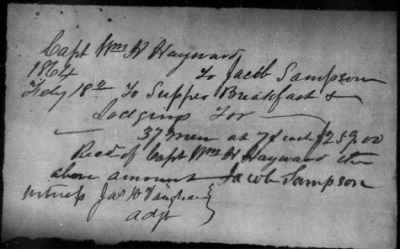 Capt Wm H Hayward
1864 To Jacob Sampson
Feby 18th To Supper Breakfast &
Lodging for
37 men at 7 $259.00
Recd of Capt Wm H Hayward the
above amount Jacob Sampson
witness Jas Vaughan
adjt